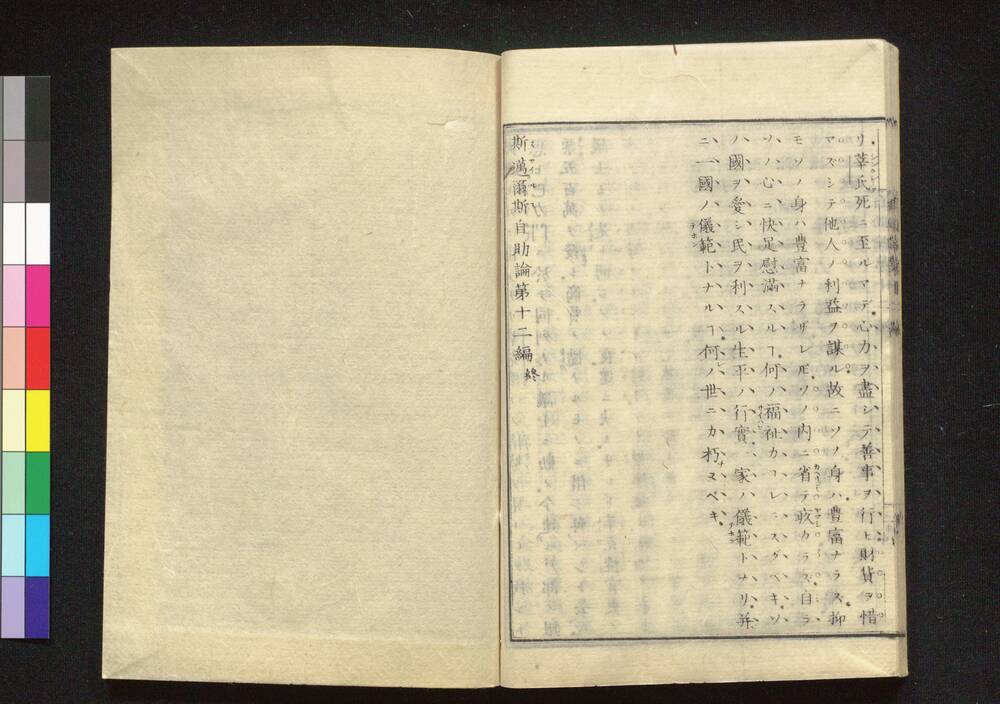 リ莘氏死ニ至ルマデ心力ヲ盡シテ善事ヲ行ヒ財貨ヲ惜
マズシテ他人ノ利益ヲ謀ル故ニソノ身ハ豊富ナラズ抑
モソノ身ハ豊富ナラザレ𪜈ソノ内ニ省テ疚カラズ自ラ
ソノ心ニ快足慰滿スルヿ何ノ福祉カコレニスグベキソ
ノ國ヲ愛シ民ヲ利スル生平ノ行實一家ノ儀範トナリ并
ニ一國ノ儀範トナルヿ何ノ世ニカ朽ヌベキ
斯邁爾斯自助論第十二編終